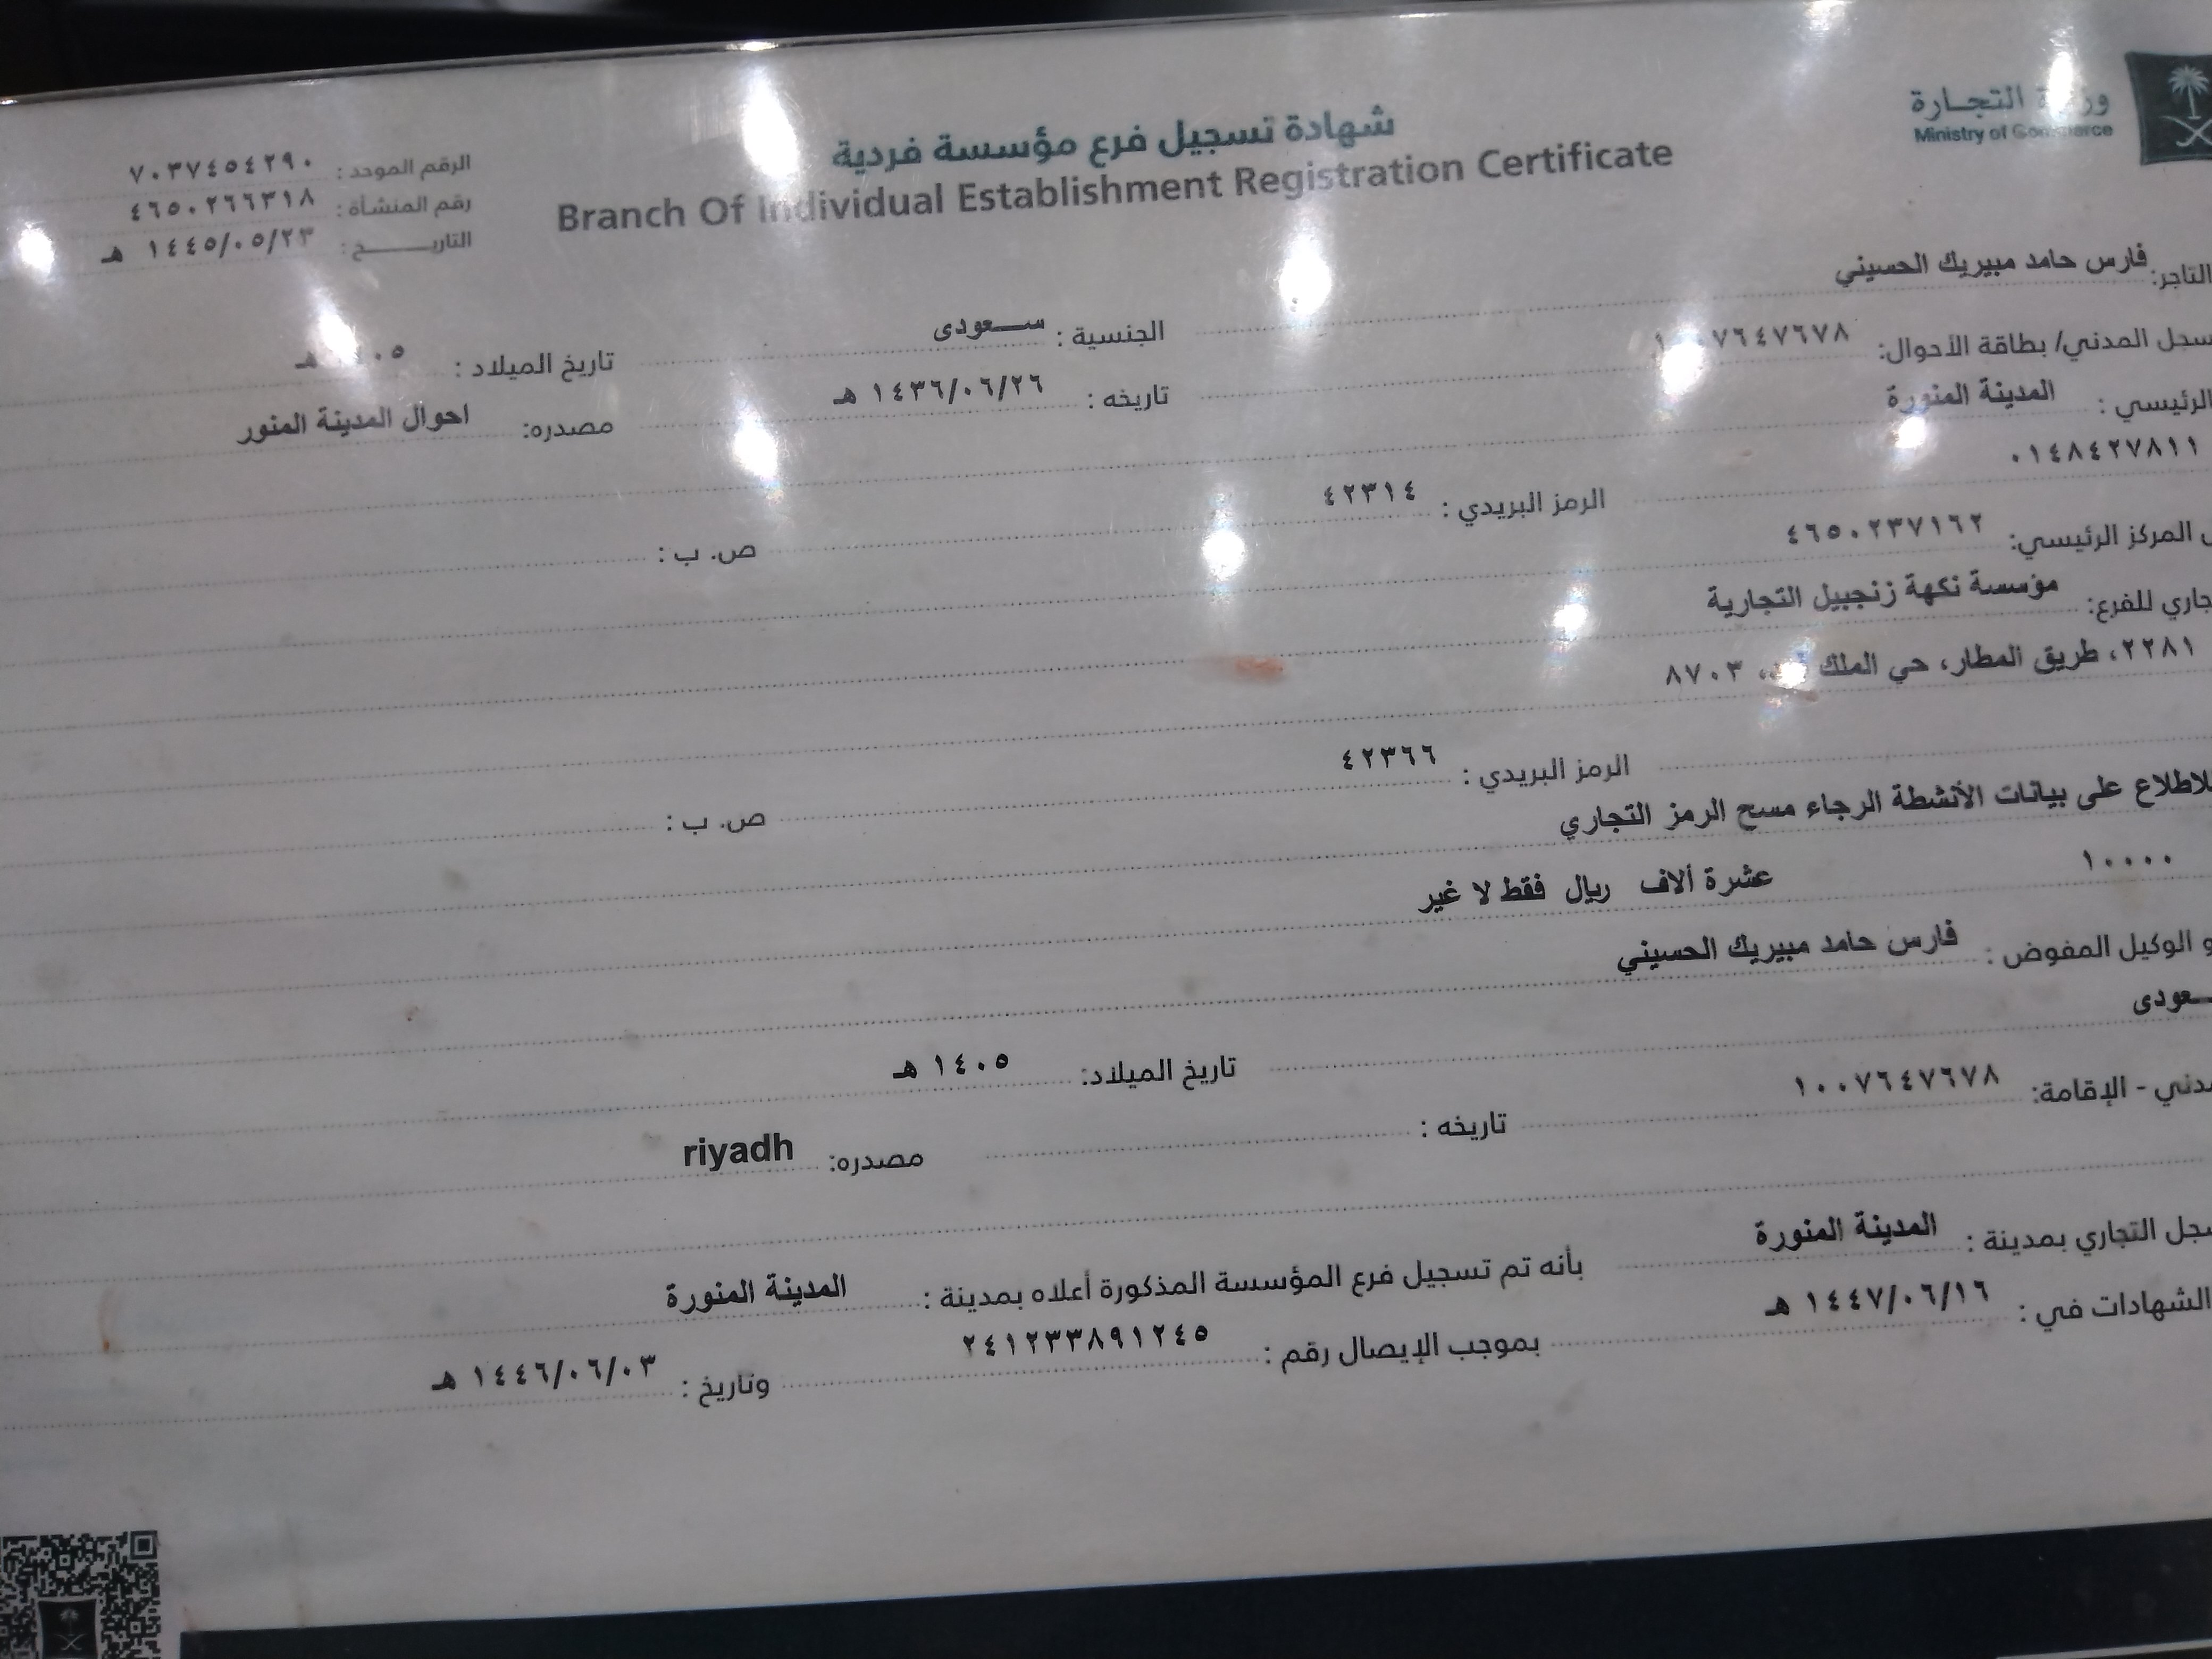 وزارة التجارة
Ministry of Commerce
شهادة تسجيل فرع مؤسسة فردية
Branch Of Individual Establishment Registration Certificate
الرقم الموحد : ٧٠٣٧٤٥٤٢٩٠
رقم المنشأة : ٤٦٥٠٢٦٦٣١٨
التاريــــــخ : ١٤٤٥/٠٥/٢٣ هـ
التاجر: فارس حامد مبيريك الحسيني الجنسية : ســعودى تاريخ الميلاد :
سجل المدني/ بطاقة الأحوال: تاريخه : ١٤٣٦/٠٦/٢٦ هـ مصدره: احوال المدينة المنور
الرئيسي : المدينة المنورة
٠١٤٨٤٢٧٨١١ الرمز البريدي : ٤٢٣١٤ ص. ب :
المركز الرئيسي: ٤٦٥٠٢٣٧١٦٢
للفرع: مؤسسة نكهة زنجبيل التجارية
٢٢٨١، طريق المطار، حي الملك ٨٧٠٣
الرمز البريدي : ٤٢٣٦٦ ص. ب :
للاطلاع على بيانات الأنشطة الرجاء مسح الرمز التجاري
١٠٠٠٠ عشرة ألاف ريال فقط لا غير
الوكيل المفوض : فارس حامد مبيريك الحسيني
ــعودى تاريخ الميلاد: ١٤٠٥ هـ
- الإقامة: ١٠٠٧٦٤٧٦٧٨ تاريخه : مصدره: riyadh
التجاري بمدينة : المدينة المنورة بأنه تم تسجيل فرع المؤسسة المذكورة أعلاه بمدينة : المدينة المنورة
الشهادات في : ١٤٤٧/٠٦/١٦ هـ بموجب الإيصال رقم : ٢٤١٢٣٣٨٩١٢٤٥ وتاريخ : ١٤٤٦/٠٦/٠٣ هـ